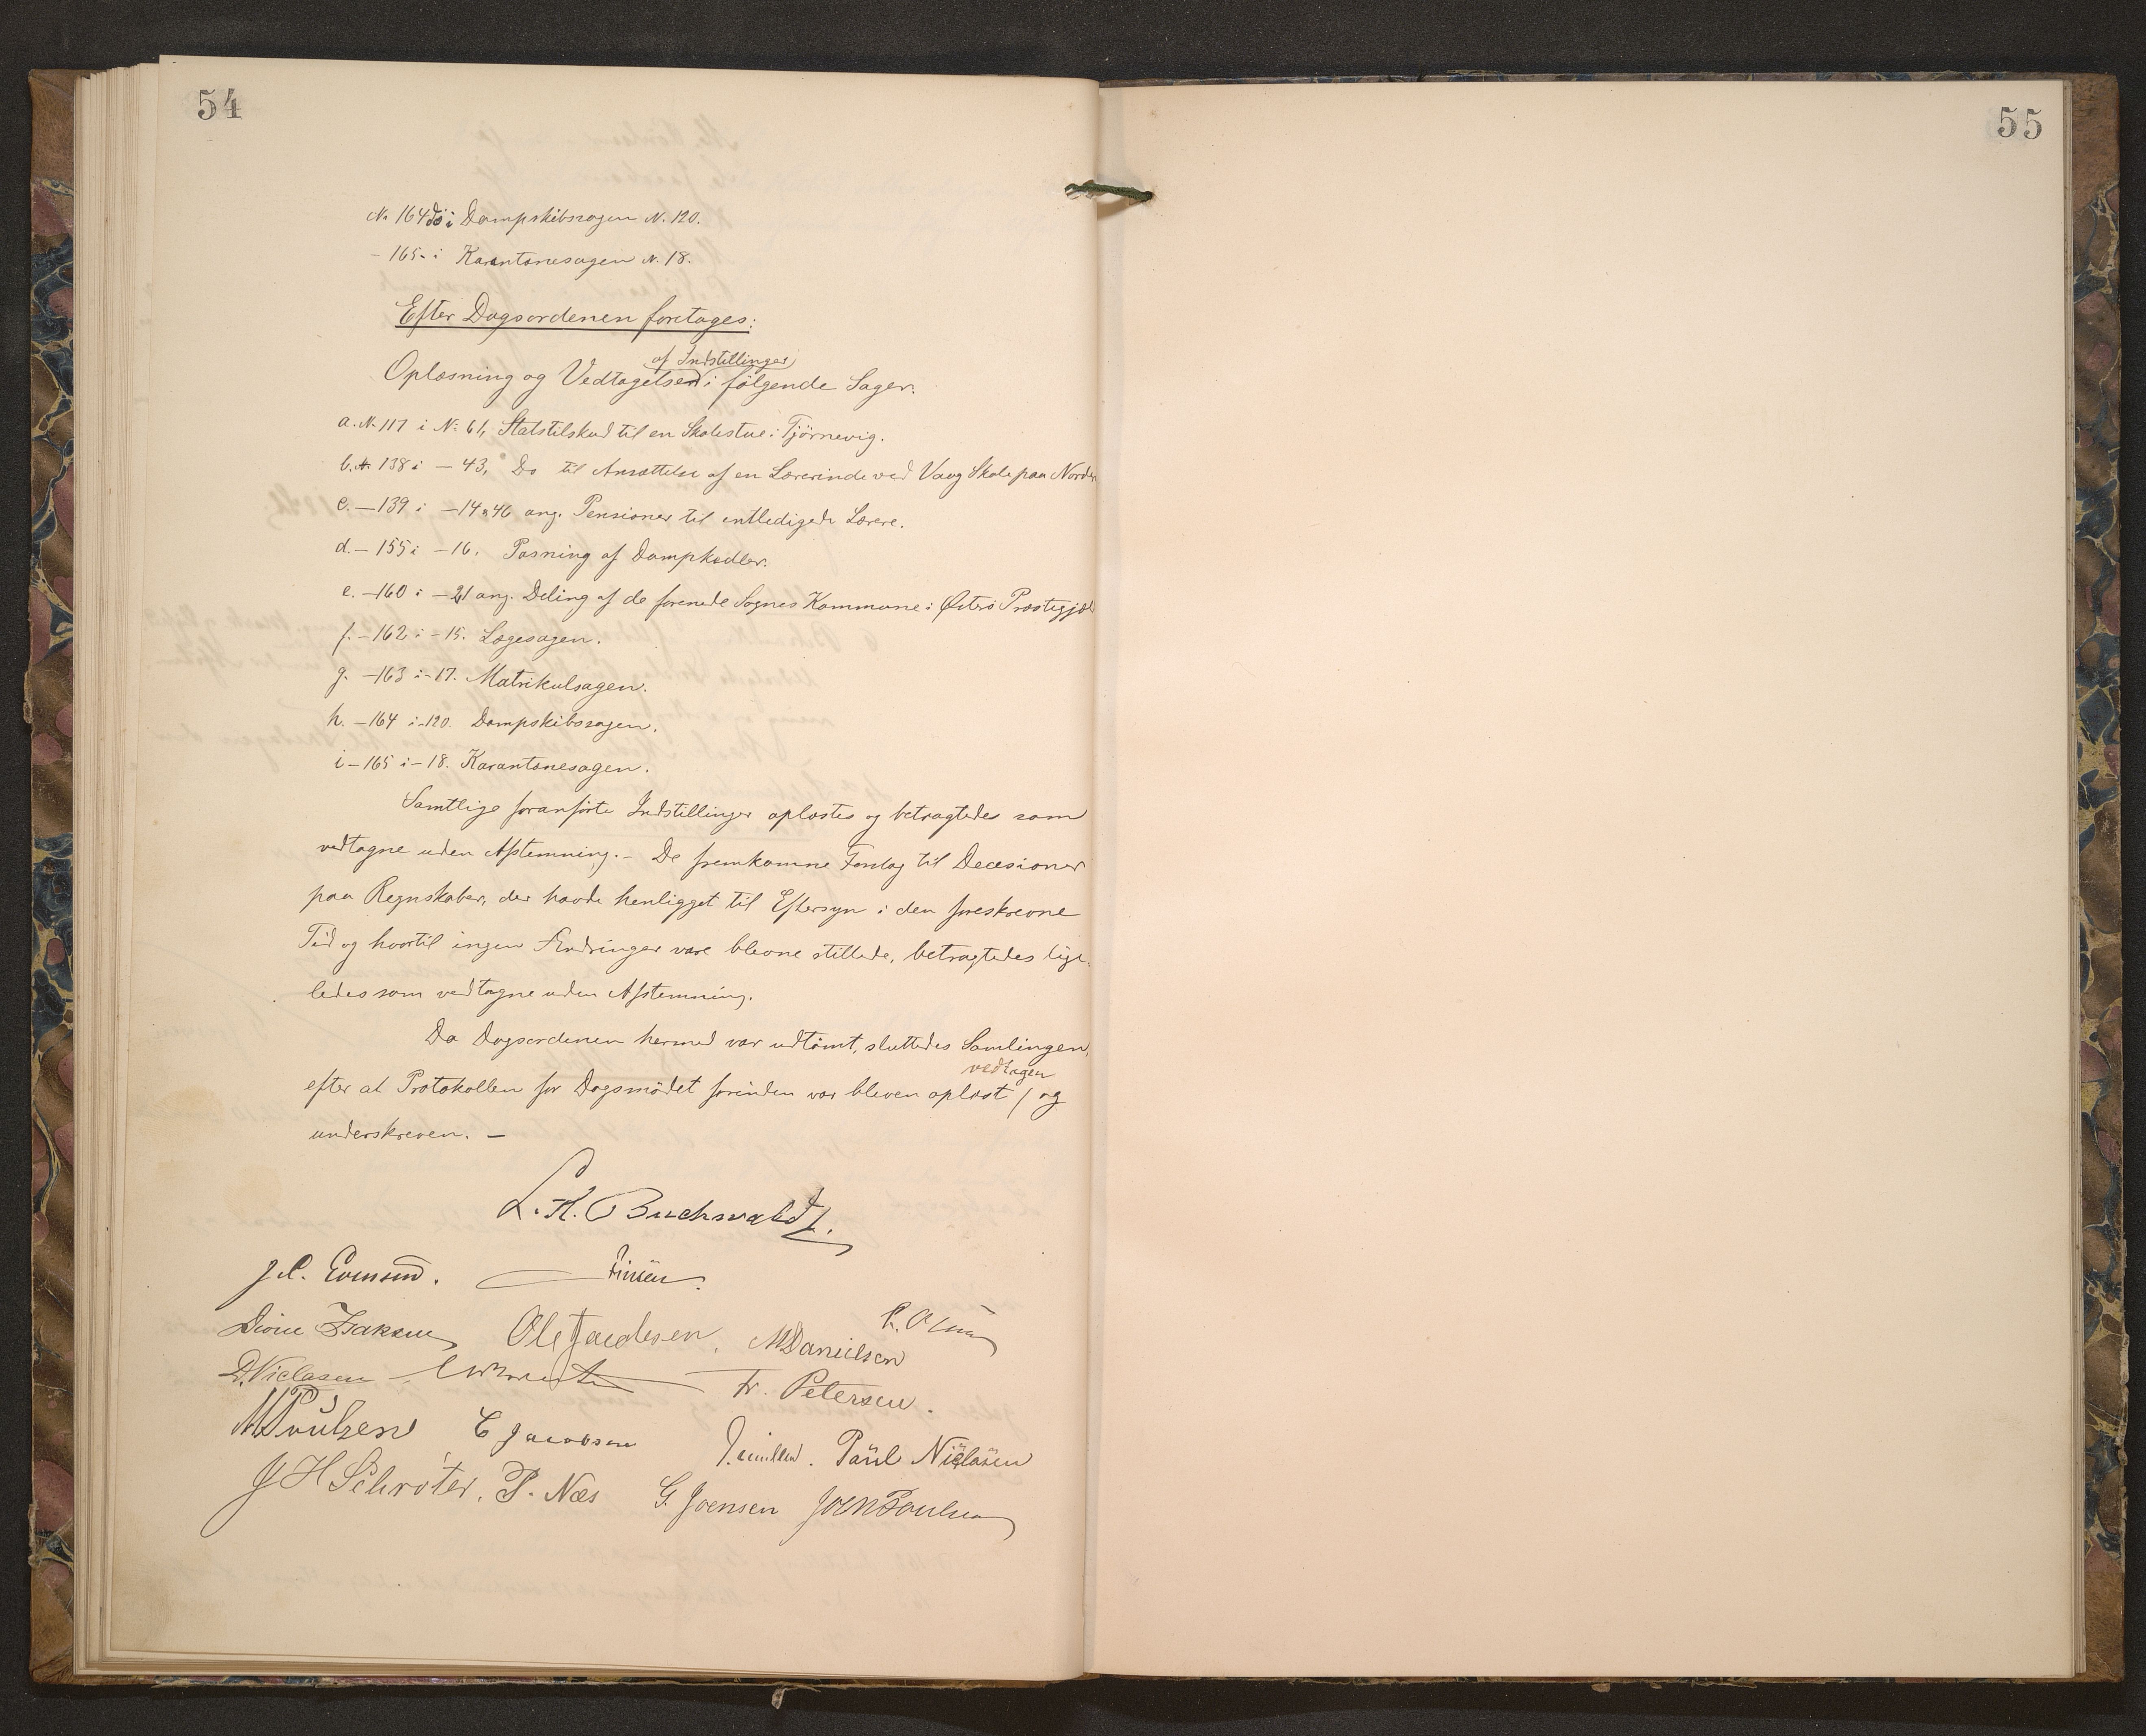 54
55
No 164 do i Dampskibssagen N. 120.
- 165 - i Karantænesagen N. 18.
Efter Dagsordenen foretages:
af Indstillinger
Oplæsning og Vedtagelsen i følgende Sager.
a. N. 117 i No 61, Statstilskud til en Skolestue i Tjörnevig.
b. N. 138 i - 43, Do til Ansættelse af en Lærerinde ved Vaag Skole paa Norder
c. - 139 i - 14 & 46 ang. Pensioner til entledigede Lærere.
d. - 155 i - 16. Pasning af Dampkedler.
e. - 160 i - 21 ang. Deling af de forenede Sognes Kommune i Østerö Præstegjæld
f. - 162 i - 15. Lægesagen.
g. - 163 i - 17. Matrikulsagen.
h. - 164 i - 120. Dampskibssagen.
i - 165 i - 18. Karantænesagen.
Samtlige foranförte Indstillinger oplæstes og betragtedes som
vedtagne uden Afstemning. - De fremkomne Forslag til Decisioner
paa Regnskaber, der havde henligget til Eftersyn i den foreskrevne
Tid og hvortil ingen Ændringer vare blevne stillede, betragtedes lige-
ledes som vedtagne uden Afstemning.
Da Dagsordenen hermed var udtömt, sluttedes Samlingen,
vedtagen
efter at Protokollen for Dagsmödet forinden var bleven oplæst / og
underskreven. -
L. H. Buchwaldt.
J. C. Evensen. Finsen.
Isaksen Ole Jacobsen. M Danielsen
D. Niclasen Fr. Petersen.
M Poulsen C Jacobsen Poul Niclasen
J H Schröter. P. Næs G. Joensen Joen Poulsen